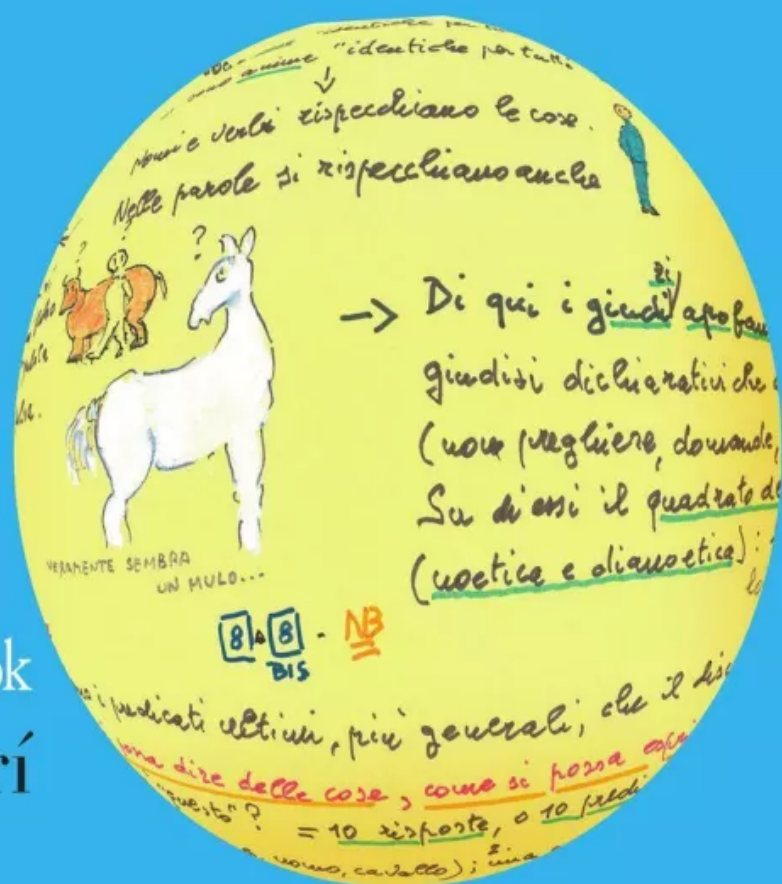 sono anime "identiche per tutti
nomi e verbi rispecchiano le cose.
Nelle parole si rispecchiano anche
?
→ Di qui i giudizi apofan
giudisi dichiarativi che
(non preghiere, domande,
Su di essi il quadrato de
(noetica e dianoetica):
VERAMENTE SEMBRA
UN MULO...
8 8 - NB
BIS
ok
rí
i predicati ultimi, più generali, che il dis
possa dire delle cose, come si possa espri
"questo"? = 10 risposte, o 10 predi
uomo, cavallo);